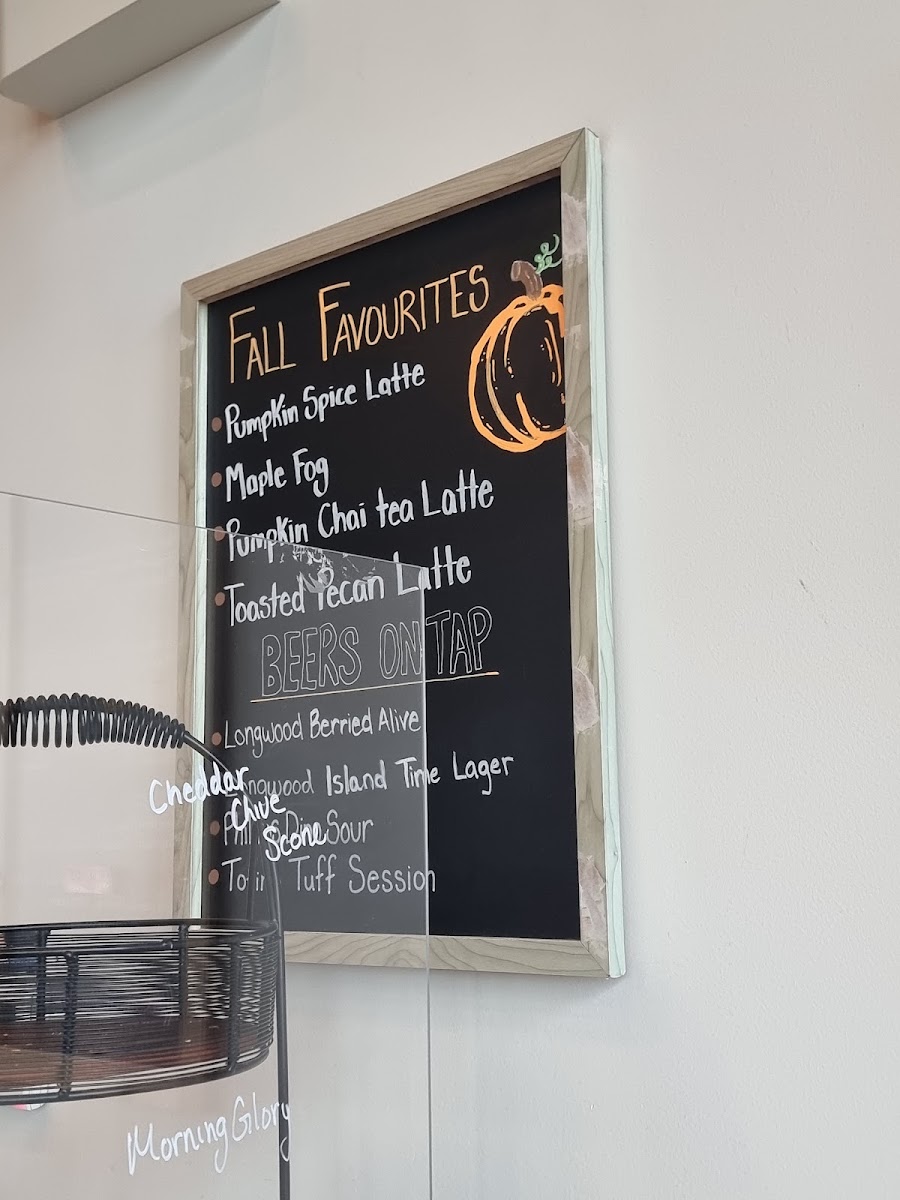 FALL FAVOURITES
Pumpkin Spice Latte
Maple Fog
Pumpkin Chai tea Latte
Toasted Pecan Latte
BEERS ON TAP
Longwood Berried Alive
Longwood Island Time Lager
Sour
Tuff Session
Cheddar
Chive
Scone
Morning Glory